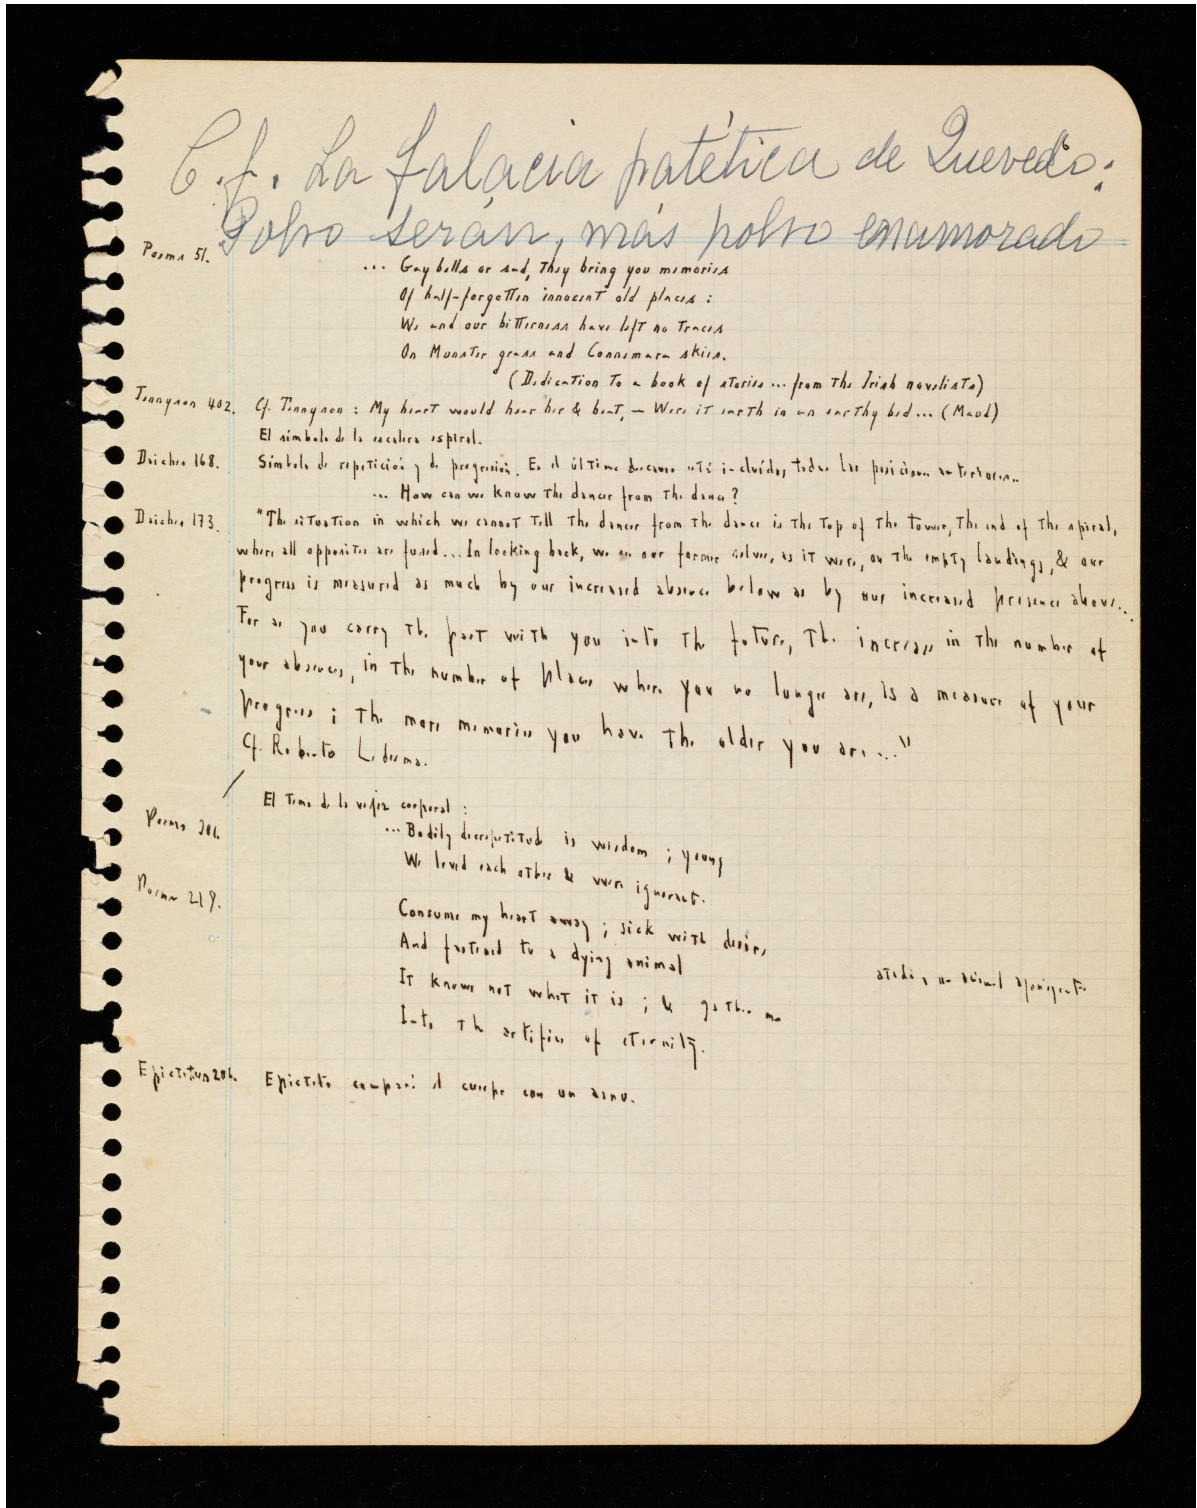 C.f. La falacia patética de Quevedo:
Polvo serán, más polvo enamorado
Poems 51.
... Gay bells or sad, they bring you memories
Of half-forgotten innocent old places:
We and our bitterness have left no traces
On Munster grass and Connemara skies.
(Dedication to a book of stories ... from the Irish novelists)
Tennyson 402. Cf. Tennyson: My heart would hear her & beat, — Were it earth in an earthy bed ... (Maud)
El símbolo de la escalera espiral.
Daiches 168. Símbolo de repetición y de progresión. En el último descanso están incluídos todas las posiciones anteriores..
... How can we know the dancer from the dance?
Daiches 173. "The situation in which we cannot tell the dancer from the dance is the top of the tower, the end of the spiral,
where all opposites are fused... In looking back, we see our former selves, as it were, on the empty landings, & our
progress is measured as much by our increased absence below as by our increased presence above...
For as you carry the past with you into the future, the increase in the number of
your absences, in the number of places where you no longer are, is a measure of your
progress; the more memories you have the older you are..."
Cf. Roberto Ledesma.
El tema de la vejez corporal:
Poems 301.
... Bodily decrepitude is wisdom; young
We loved each other & were ignorant.
Poems 218.
Consume my heart away; sick with desire,
And fastened to a dying animal
It knows not what it is; & gather me
Into the artifice of eternity.
atado a un animal agonizante
Epictetus 206. Epicteto comparó el cuerpo con un asno.